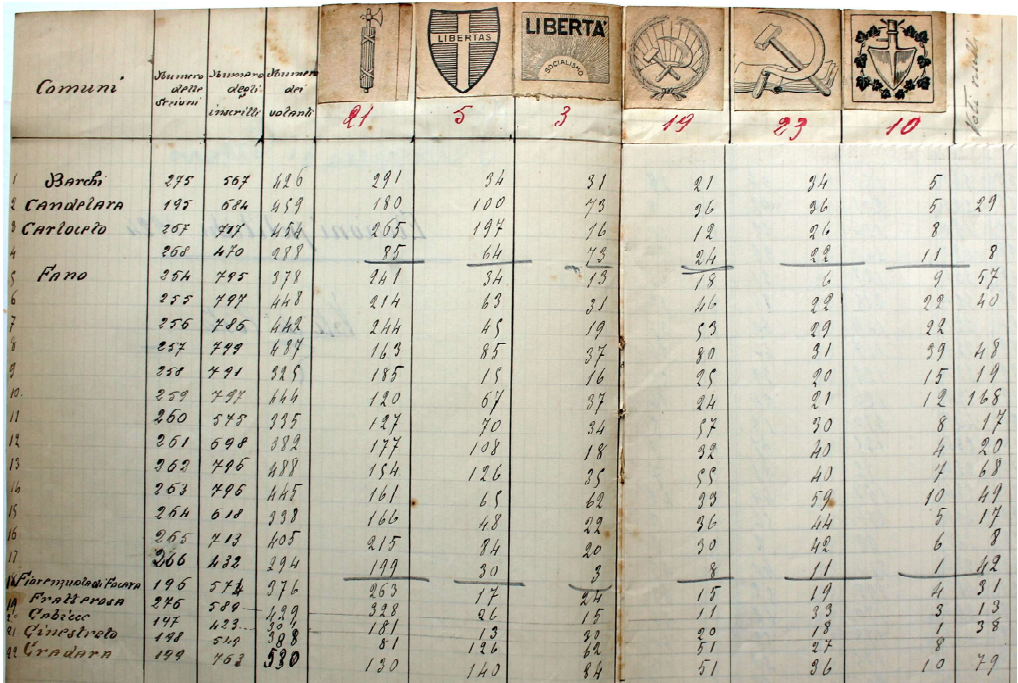 Comuni Numero delle sezioni Numero degli inscritti Numero dei votanti LIBERTAS LIBERTA' SOCIALISMO Voti nulli
21 5 3 19 23 10
1 Barchi 275 567 426 291 34 31 21 34 5
2 Candelara 195 684 459 180 100 73 36 36 5 29
3 Cartoceto 267 265 197 16 12 26 8
4 268 470 288 85 64 73 24 22 11 8
5 Fano 254 795 378 241 34 13 18 6 9 57
6 255 797 448 214 63 31 46 22 22 40
7 256 786 442 244 45 19 53 29 22
8 257 799 487 163 85 37 80 31 39 48
9 258 791 325 185 15 16 25 20 15 19
10 259 797 444 120 67 37 24 21 12 168
11 260 575 335 127 70 34 57 30 8 17
12 261 698 382 177 108 18 32 40 4 20
13 262 796 488 154 126 35 55 40 7 68
14 263 796 445 161 65 62 39 59 10 49
15 264 618 338 166 48 22 36 44 5 17
16 265 713 405 215 84 20 30 42 6 8
17 266 432 294 199 30 3 8 11 1 42
18 Fiorenzuola di Focara 196 574 376 263 17 24 15 19 4 31
19 Fratterosa 276 589 429 328 26 15 11 33 3 13
Gabicce 197 423 181 13 30 20 18 1 38
21 Ginestreto 198 388 81 126 62 51 27 8
22 Gradara 199 763 530 130 140 84 51 36 10 79